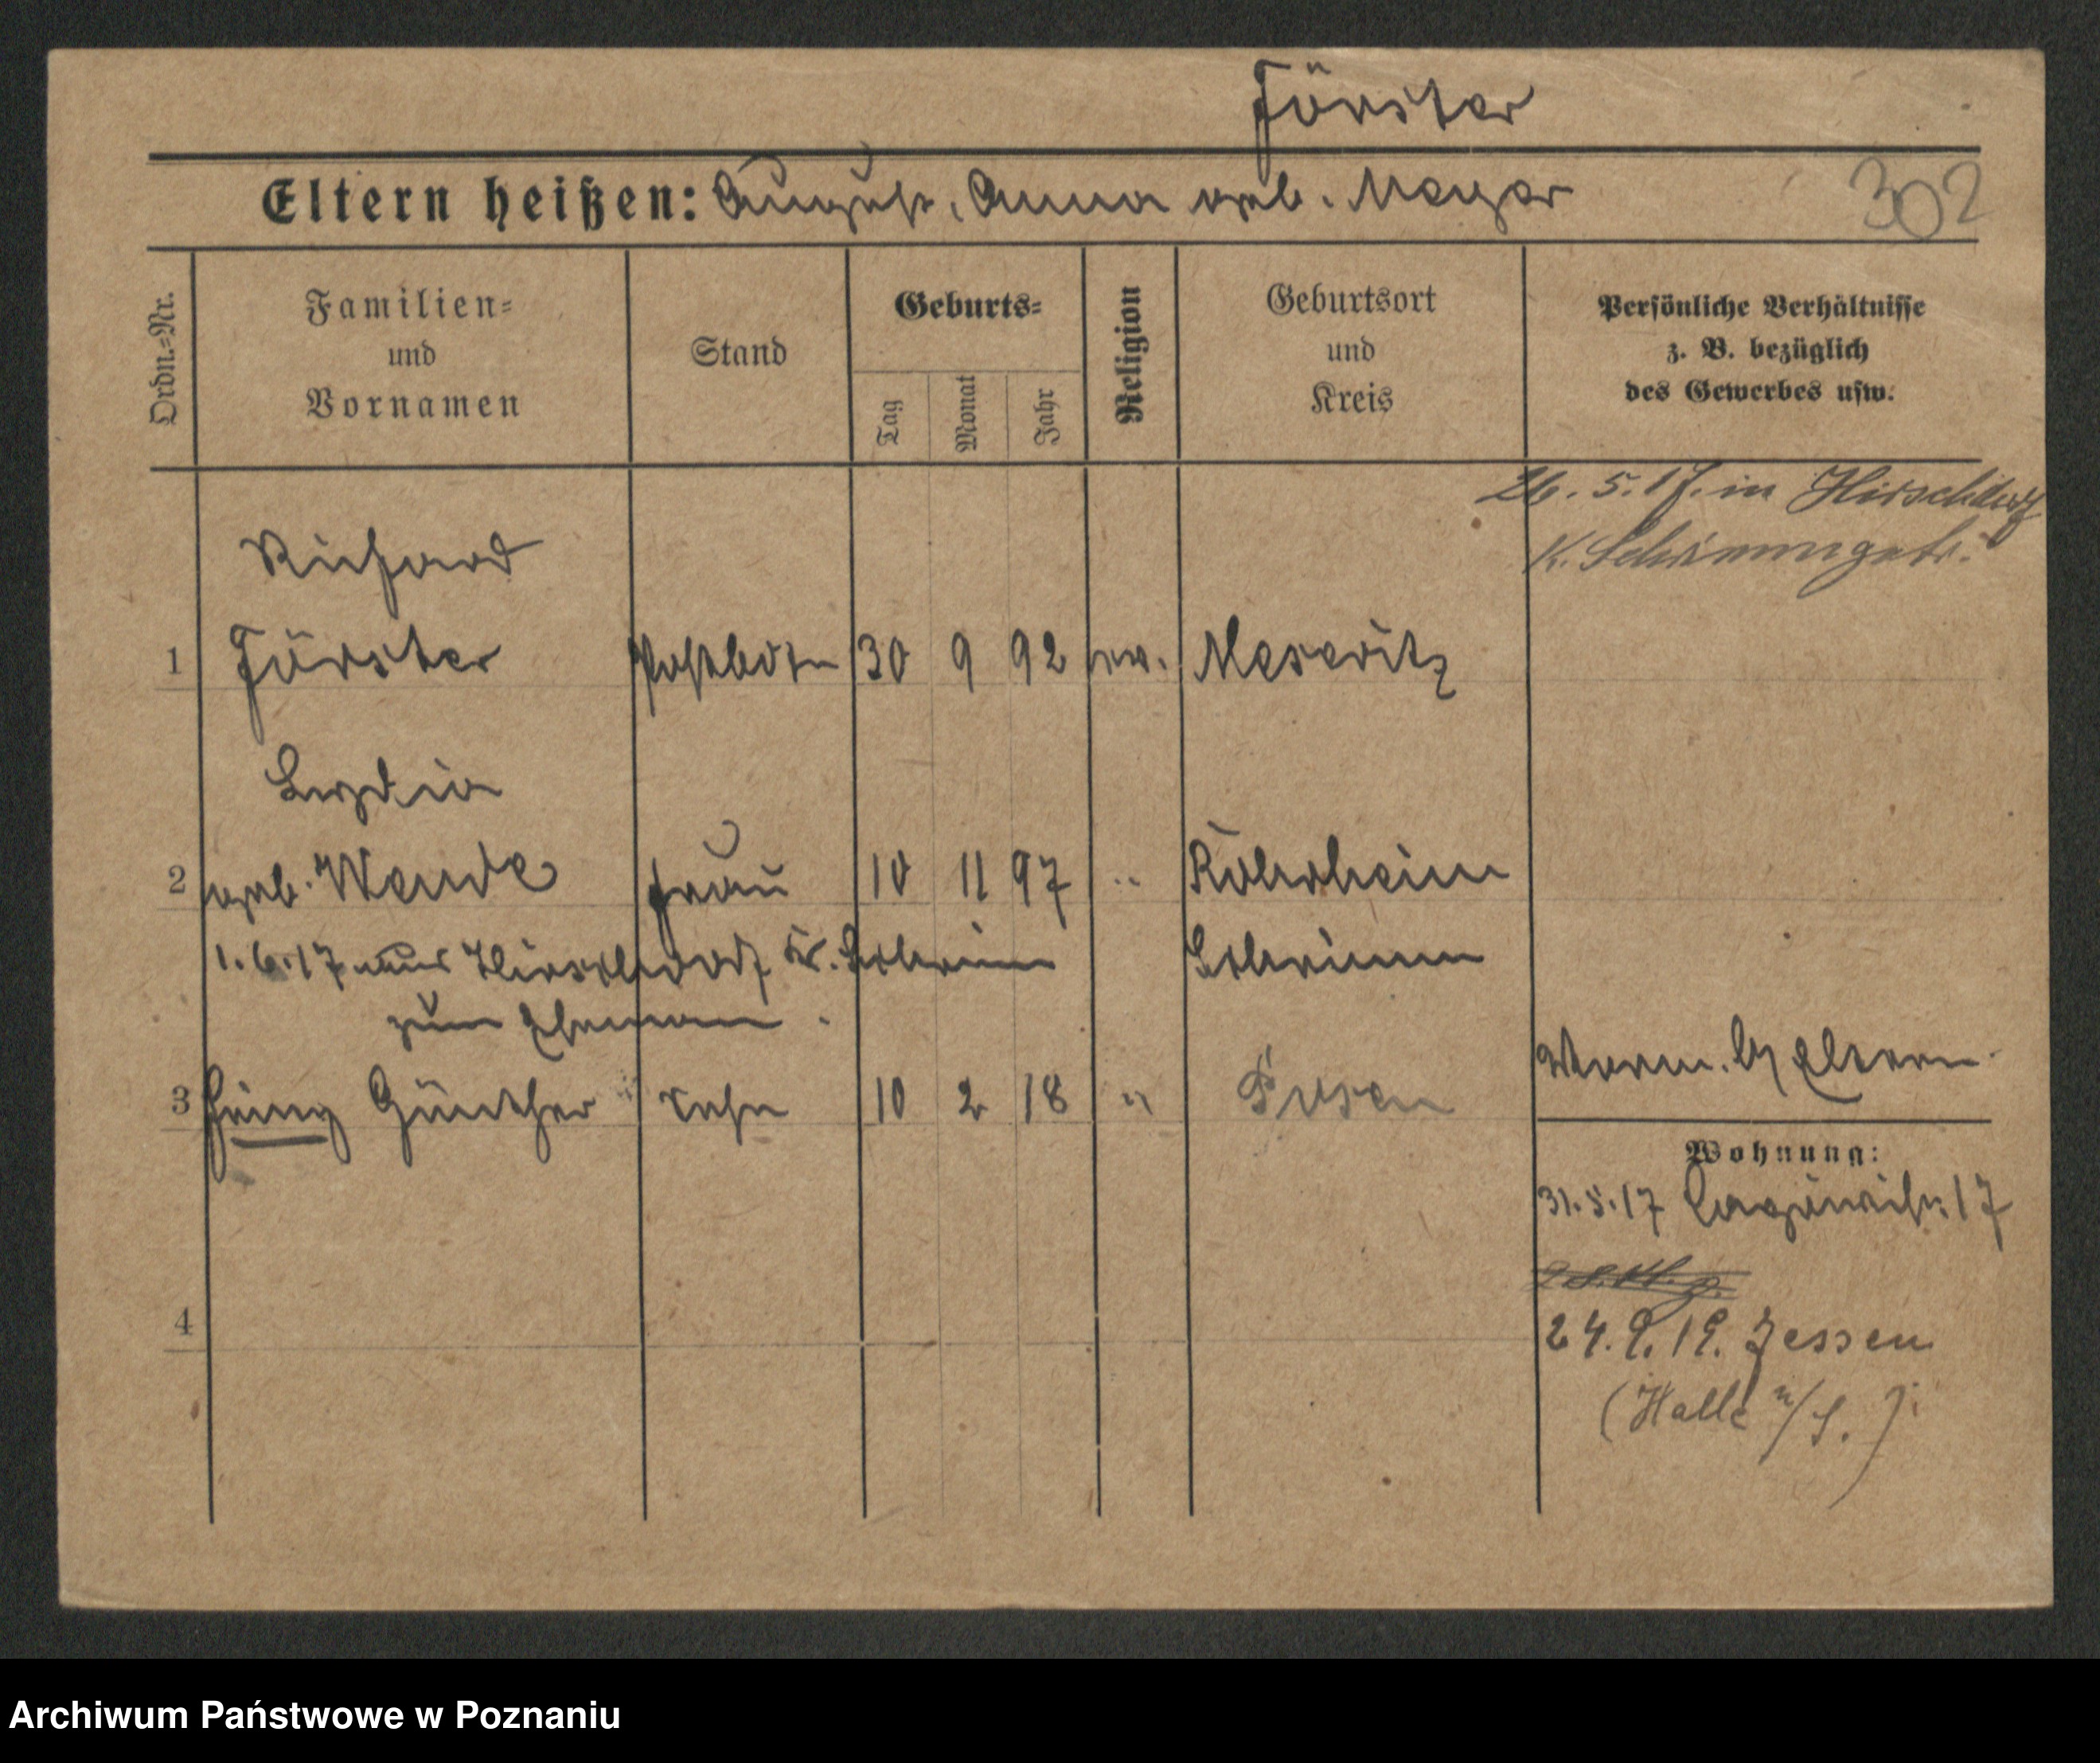 Förster
Eltern heißen: August, Anna geb. Meyer
302
Ordn.=Nr.
Familien=
und
Vornamen
Stand
Geburts=
Tag
Monat
Jahr
Religion
Geburtsort
und
Kreis
Persönliche Verhältnisse
z. B. bezüglich
des Gewerbes usw.
26. 5. 17. in Hirschdorf
K. Schrimm getr.
Richard
1 Förster Postbote 30 9 92 ev. Meseritz
Lydia
2 geb. Wende Frau 10 11 97 " Röhrsheim
1. 6. 17 aus Hirschdorf Kr. Schrimm
Schrimm
zum Ehemann.
3 Heinz Günther Sohn 10 2 18 " Posen
Verm. Eltern
Wohnung:
31. 5. 17 17
4
24. 9. 19. Jessen
(Halle a/S.)
Archiwum Państwowe w Poznaniu